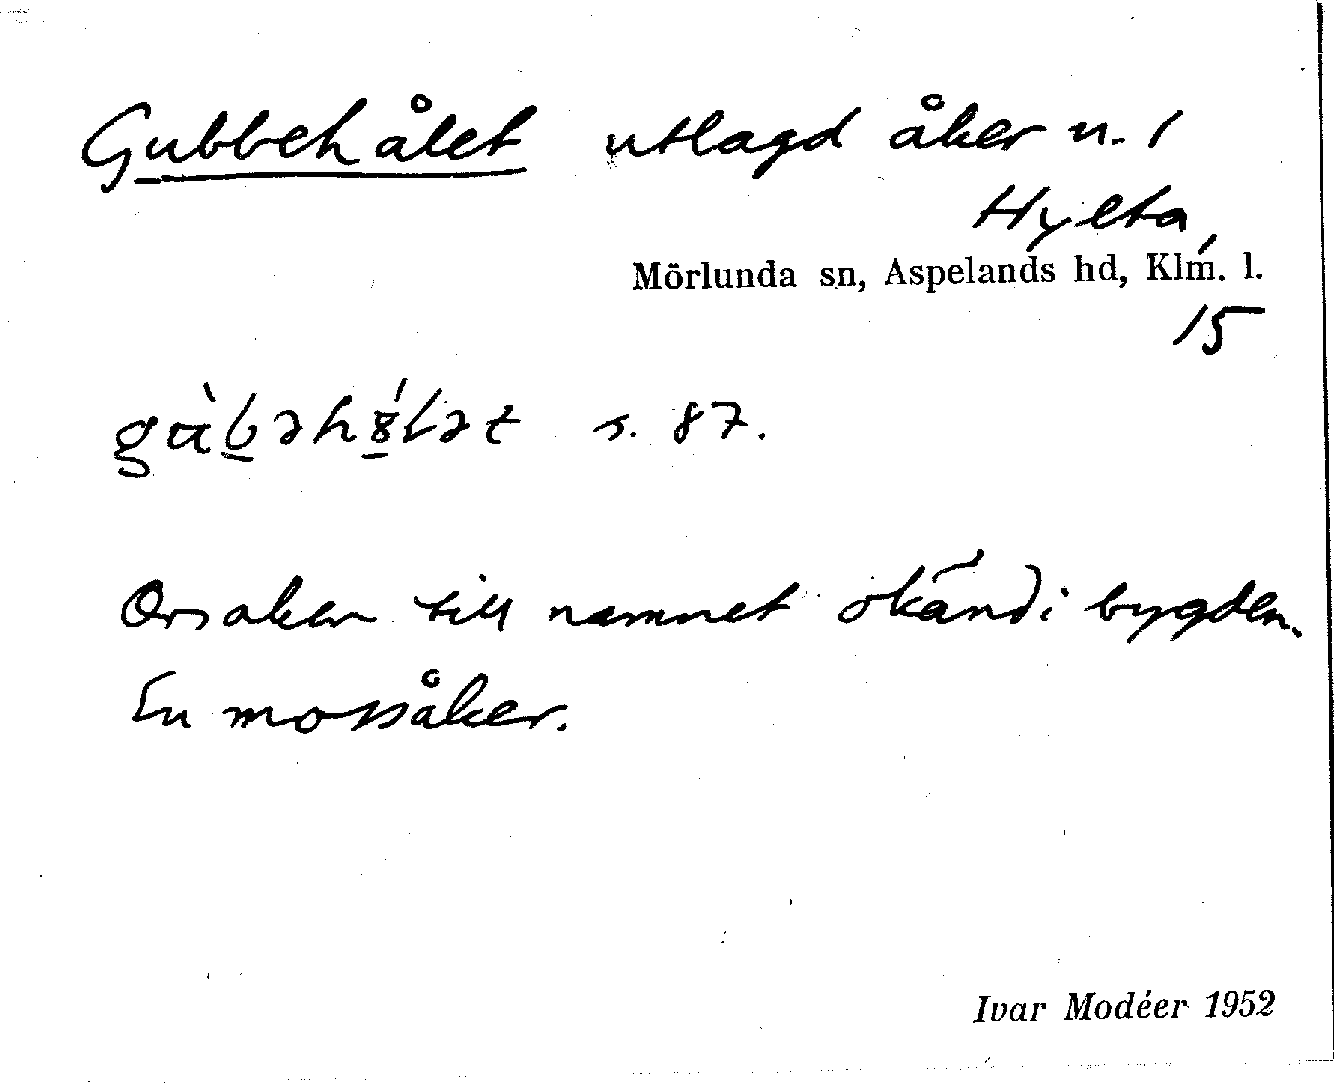 Gubbehålet utlagd åker n. 1
Hylta,
Mörlunda sn, Aspelands hd, Klm. l.
15
s. 87.
Orsaken till namnet okänd i bygden.
En mossåker.
Ivar Modéer 1952